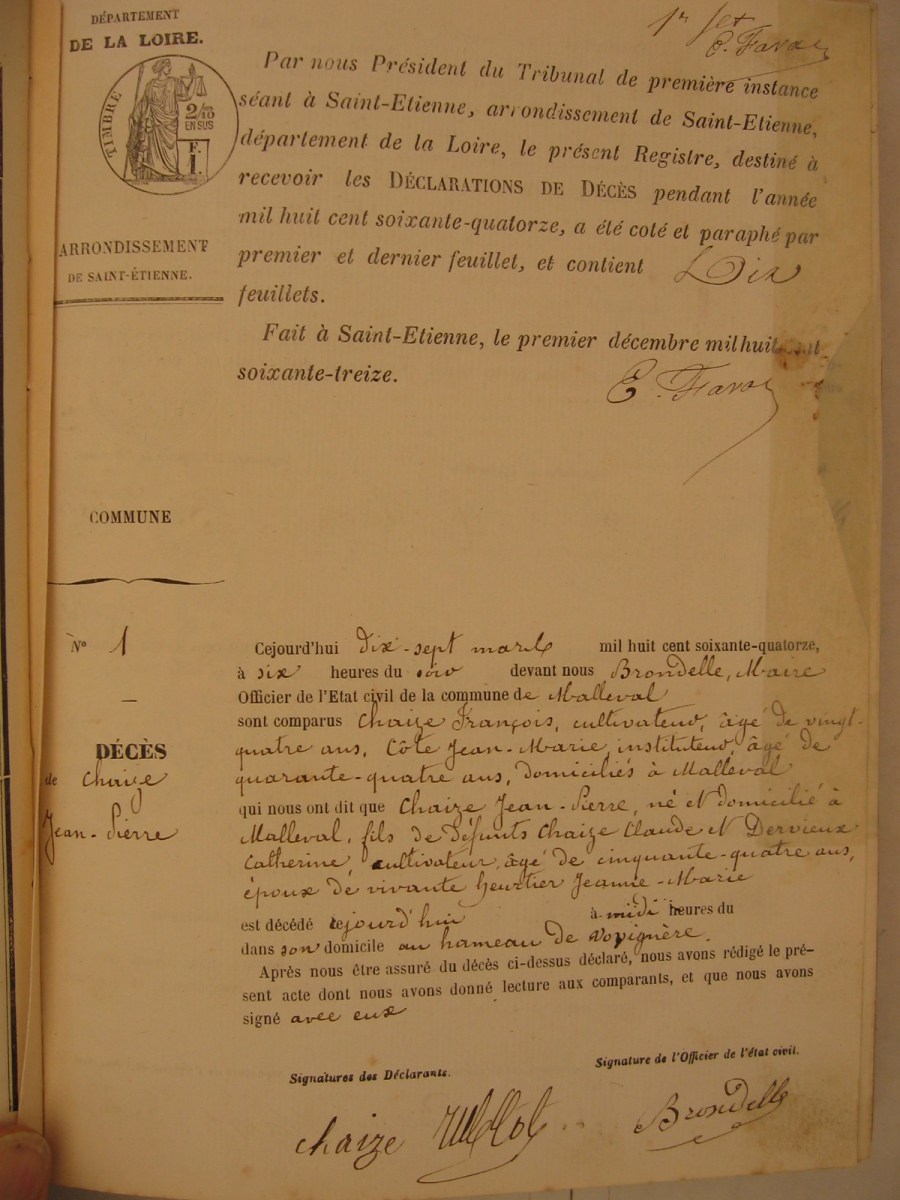 DÉPARTEMENT
DE LA LOIRE.
TIMBRE
2/10
EN SUS
F.
1.
ARRONDISSEMENT
DE SAINT-ÉTIENNE.
1er
E. Favo
Par nous Président du Tribunal de première instance
séant à Saint-Etienne, arrondissement de Saint-Etienne,
département de la Loire, le présent Registre, destiné à
recevoir les DÉCLARATIONS DE DÉCÈS pendant l'année
mil huit cent soixante-quatorze, a été coté et paraphé par
premier et dernier feuillet, et contient Dix
feuillets.
Fait à Saint-Etienne, le premier décembre mil huit cent
soixante-treize.
E. Favo
COMMUNE
N° 1
DÉCÈS
de Chaize
Jean-Pierre
Cejourd'hui dix-sept mars mil huit cent soixante-quatorze,
à six heures du soir devant nous Brondelle, Maire
Officier de l'Etat civil de la commune de Malleval
sont comparus Chaize François, cultivateur, âgé de vingt-
quatre ans, Côte Jean-Marie, instituteur, âgé de
quarante-quatre ans, domiciliés à Malleval
qui nous ont dit que Chaize Jean-Pierre, né et domicilié à
Malleval, fils de défunts Chaize Claude et Dervieux
Catherine, cultivateur, âgé de cinquante-quatre ans,
époux de vivante heurtier Jeanne-Marie
est décédé cejourd'hui à midi heures du
dans son domicile au hameau de
Après nous être assuré du décès ci-dessus déclaré, nous avons rédigé le pré-
sent acte dont nous avons donné lecture aux comparants, et que nous avons
signé avec eux
Signatures des Déclarants.
Signature de l'Officier de l'état civil.
Chaize
Brondelle